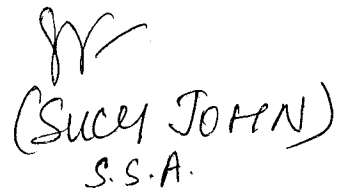 (SUCY JOHN)
S.S.A.